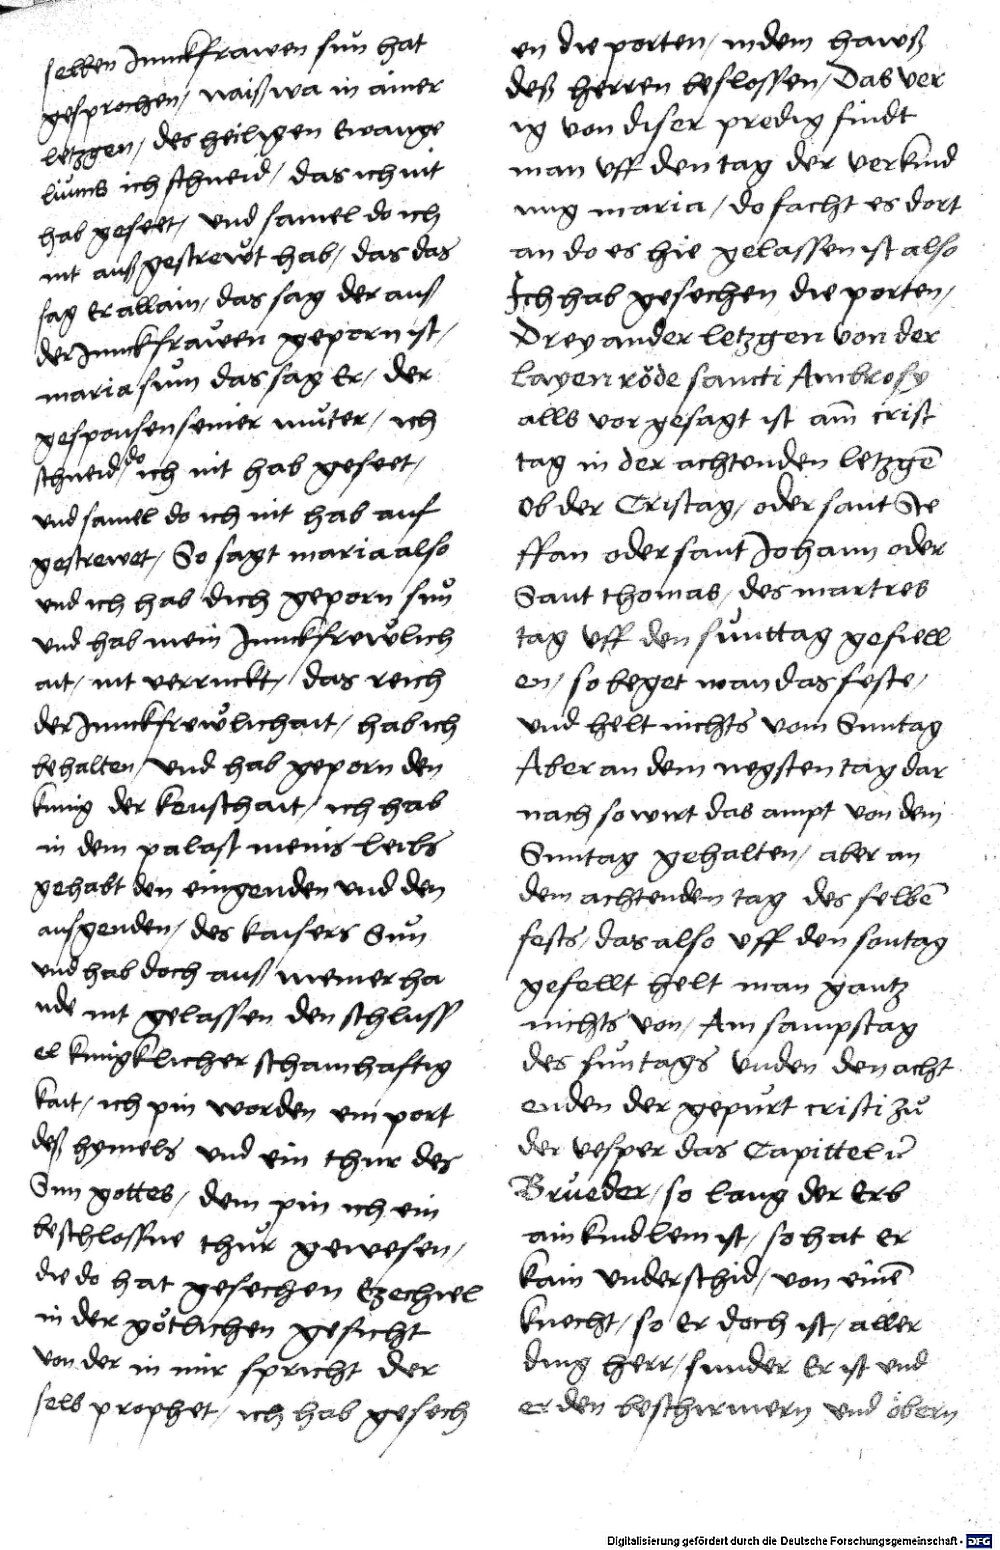 selben Junckfrawen sun hat
gesprochen / waiss wa in ainer
letzgen / des heiligen Ewange
liums ich schneid / das ich nit
hab geseet / und samel do ich
nit auß gestrewt hab / das das
sag er allain / das sag der auß
der Junckfrawen geporn ist /
maria sun das sag Er / der
gesponsen seiner muter / ich
schneid / do ich nit hab geseet /
und samel do ich nit hab auf
gestrewet / So sagt maria also
und ich hab dich geporn sun
und hab mein Junckfrewlich
ait / nit verruckt / das reich
der Junckfrewlichait / hab ich
behalten / und hab geporn den
kunig der keuschait / ich hab
in dem palast meins leibs
gehabt den eingenden und den
ausgenden / des kaisers Sun
und hab doch auß meiner ha
nde nit gelassen den schluss
el kungklicher schamhaftig
kait / ich pin worden ein port
deß hymels und ein thur des
Sun gottes / dem pin ich ein
beschlossne thur gewesen /
die do hat gesechen Ezechiel
in der götlichen gesicht
von der in mir spricht der
selb prophet / ich hab gesech
en die porten / in dem hawß
deß herren beslossen / Das ver
ig von diser predig findt
man uff den tag der verkund
ung maria / do facht es dort
an do es hie gelassen ist also
Ich hab gesechen die porten /
Drey ander letzgen von der
layen röde sancti Ambrosy
alls vor gesagt ist am crist
tag in der achtenden letzgē
Ob der Cristag / oder sant Ste
ffan oder sant Johann oder
Sant thomas / des martres
tag uff den sunttag gefiell
en / so beget man das feste /
und helt nichts vom Sunntag
Aber an dem negsten tag dar
nach so wirt das ampt von dem
Sunntag gehalten / aber an
dem achtenden tag des selbē
fests / das also uff den sontag
gefellt helt man gantz
nichts von / Am sampstag
des suntags unden den acht
enden der gepurt cristi zů
der vesper das Capittel ū
Brueder / so lang der Erb
ain kindlein ist / so hat Er
kain underschid / von einē
knecht / so Er doch ist / aller
ding herr / sunder Er ist und
er den beschirmern und öbern
Digitalisierung gefördert durch die Deutsche Forschungsgemeinschaft - DFG